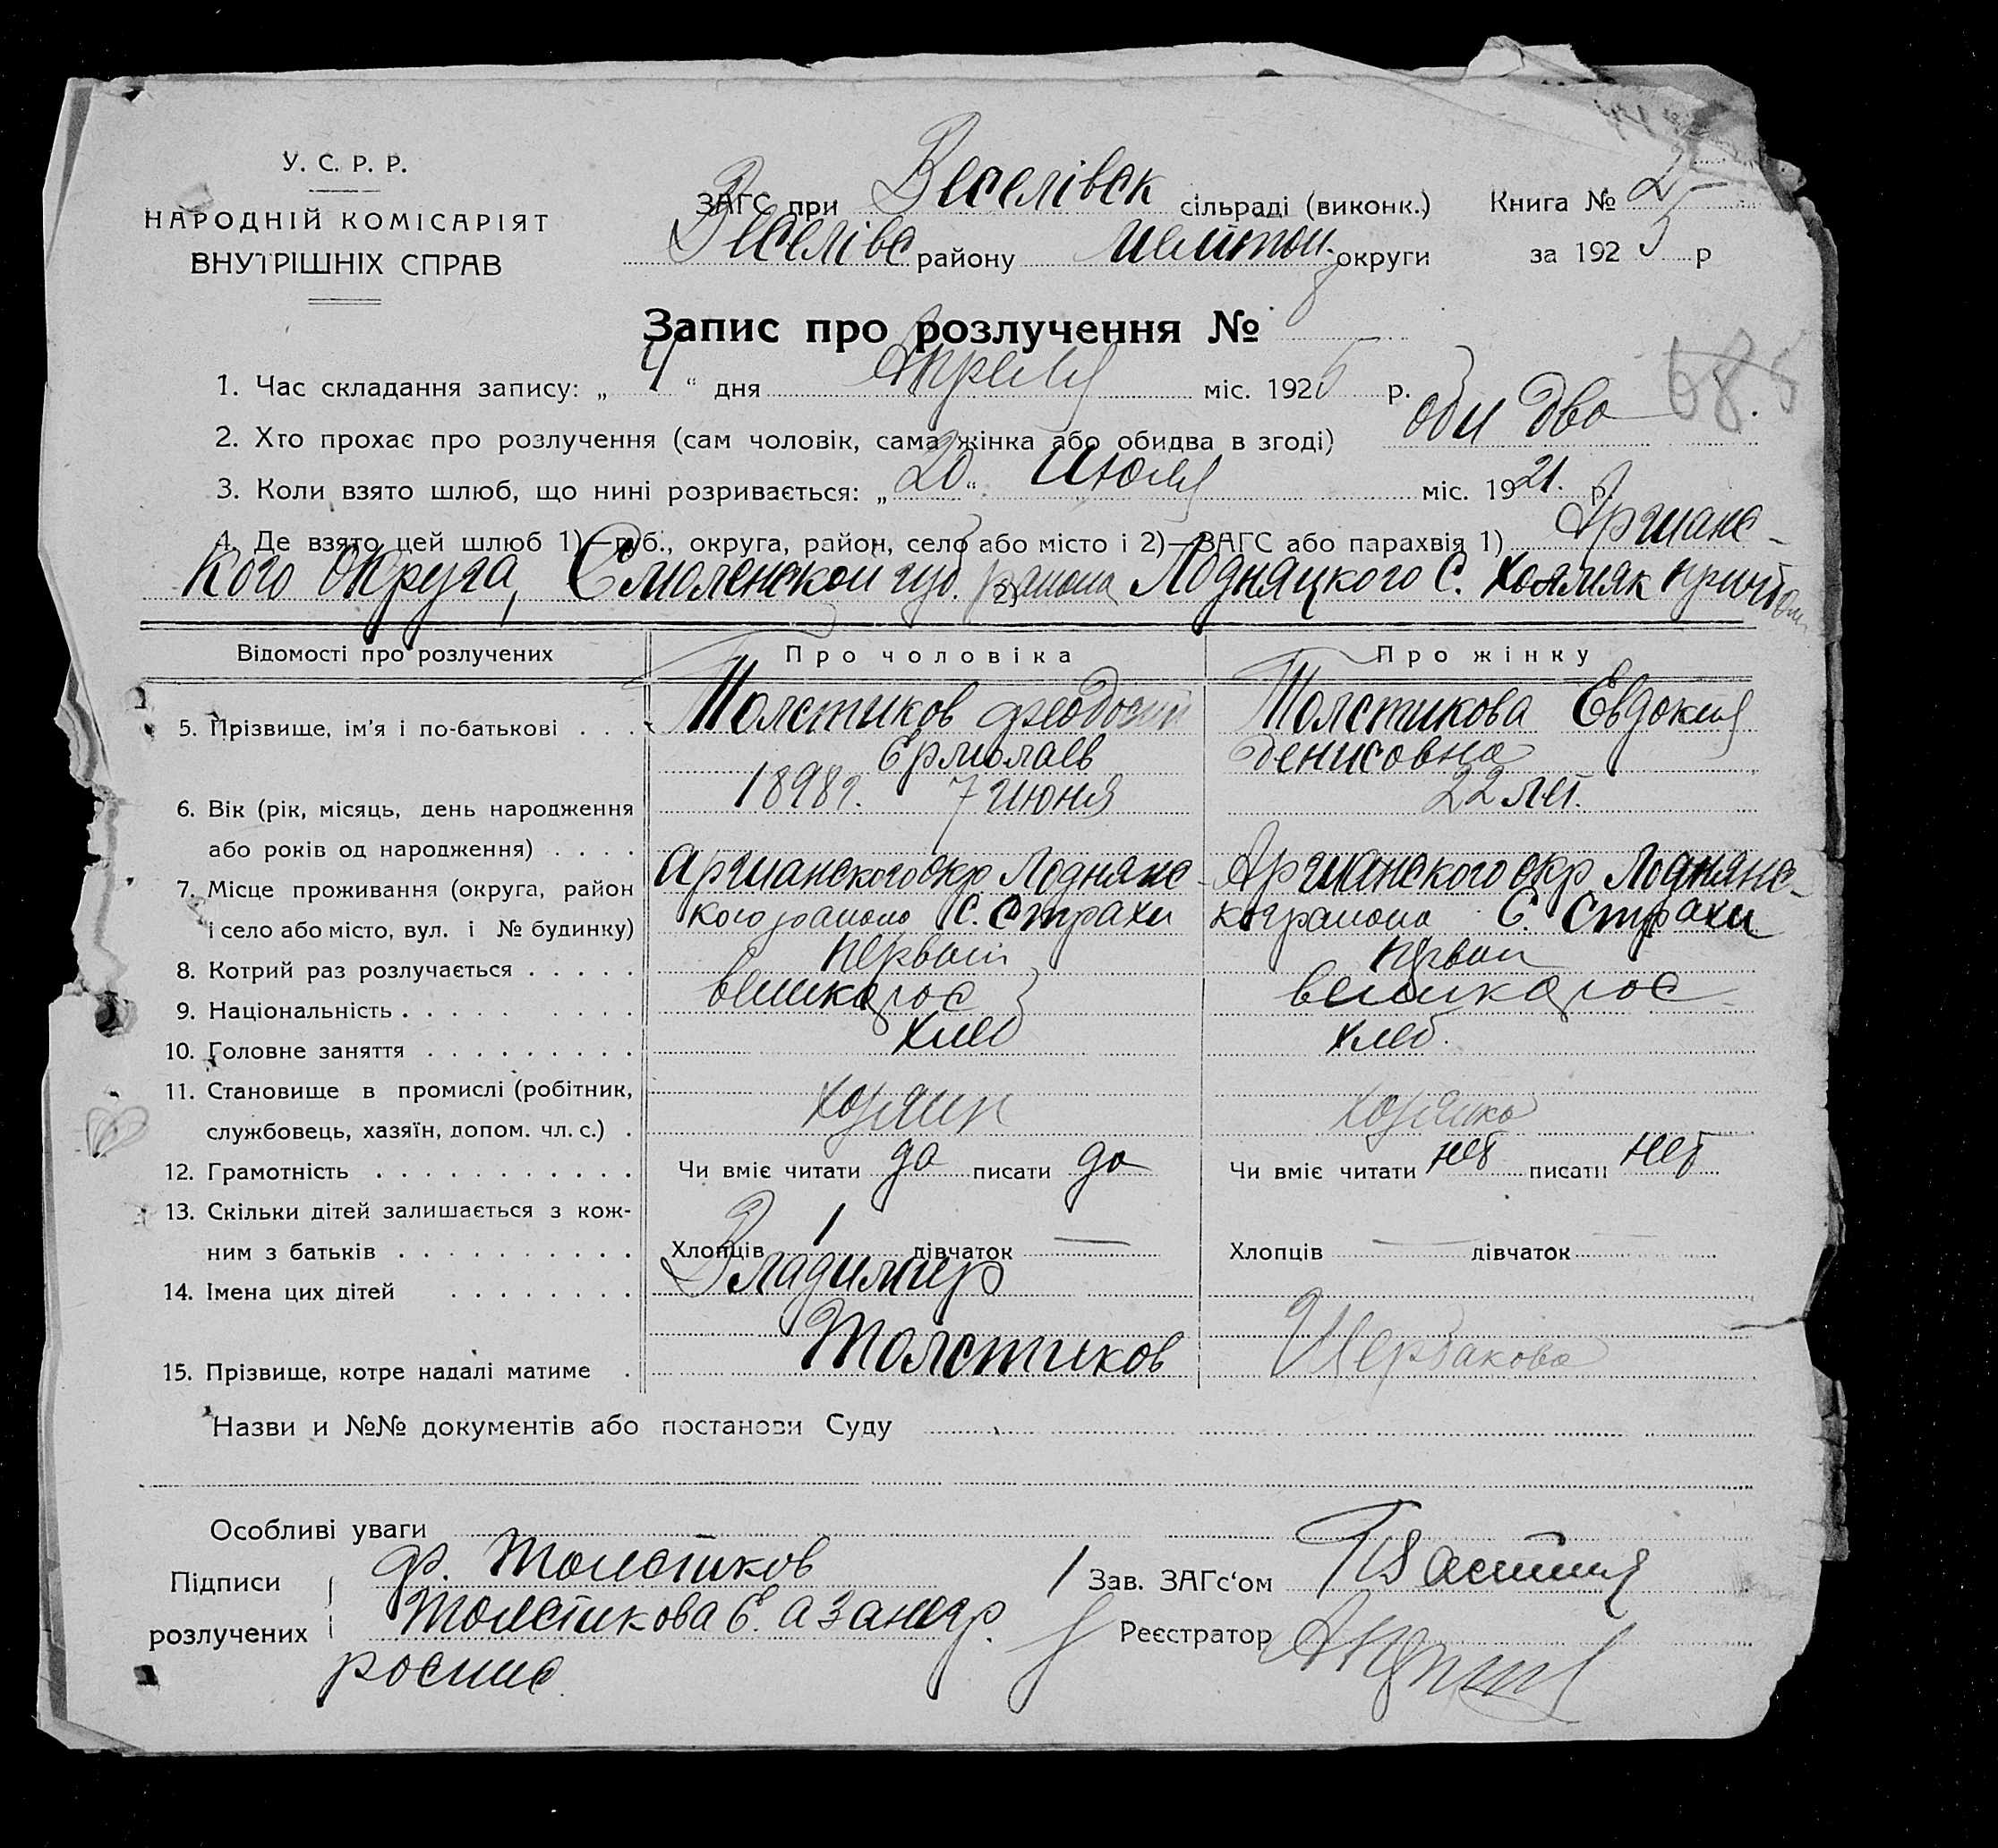 У. С. Р. Р.
НАРОДНІЙ КОМІСАРІЯТ
ВНУТРІШНІХ СПРАВ
ЗАГС при Веселівск сільраді (виконк.) Книга № 2
Веселівс району Мелітоп. округи за 1925 р
Запис про розлучення № 8
1. Час складання запису: „ 4 “ дня Апреля міс. 1925 р.
2. Хто прохає про розлучення (сам чоловік, сама жінка або обидва в згоді) оби два
685
3. Коли взято шлюб, що нині розривається: „ 20 “ Июля міс. 1921. р.
4. Де взято цей шлюб 1)—губ., округа, район, село або місто і 2)—ЗАГС або парахвія 1) Аршанс-
кого округа, Смоленской губ. 2) района Лодняцкого С.
Відомості про розлучених Про чоловіка Про жінку
5. Прізвище, ім'я і по-батькові . . . Толстиков Феодосий Толстикова Евдокия
Ермолаев Денисовна
6. Вік (рік, місяць, день народження 1898г. 7 июня 22 лет.
або років од народження) . . . .
7. Місце проживання (округа, район Аршанского окр Лоднянс- Аршанского окр Лоднянс-
і село або місто, вул. і № будинку) кого района С. Страхи С. Страхи
8. Котрий раз розлучається . . . . . первый первый
9. Національність . . . . . . . . . великорос великорос
10. Головне заняття . . . . . . . . . хлеб хлеб.
11. Становище в промислі (робітник,
службовець, хазяїн, допом. чл. с.) . хозяин хозяйка
12. Грамотність . . . . . . . . . . . Чи вміє читати да писати да Чи вміє читати нет писати нет
13. Скільки дітей залишається з кож-
ним з батьків . . . . . . . . . . Хлопців 1 дівчаток — Хлопців — дівчаток —
14. Імена цих дітей . . . . . . . . Владимир
15. Прізвище, котре надалі матиме . Толстиков Щербакова
Назви и №№ документів або постанови Суду
Особливі уваги
Підписи Ф. Толстиков Зав. ЗАГс'ом
розлучених Толстикова Е. а за негр. Реєстратор
роспис